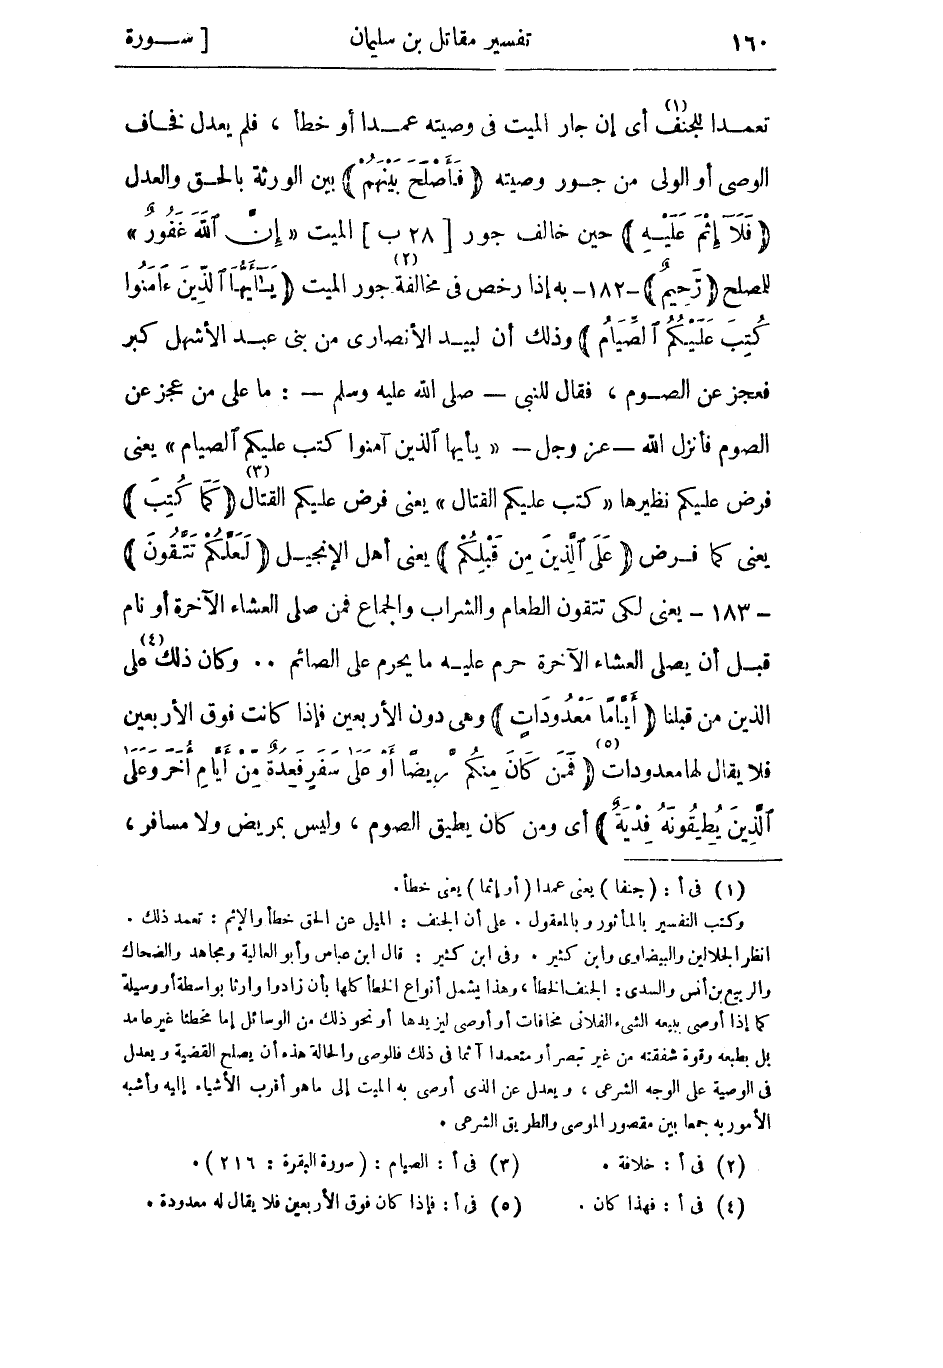 ١٦٠ تفسير مقاتل بن سليمان [ سـورة
تعمـدا للجنف (١) أى إن جار الميت فى وصيته عمـدا أو خطأ ، فلم يعدل فخاف
الوصى أو الولى من جـور وصيته ﴿ فَأَصْلَحَ بَيْنَهُمْ ﴾ بين الورثة بالحـق والعدل
﴿ فَلَآ إِثْمَ عَلَيْـهِ ﴾ حين خالف جور [ ٢٨ ب ] الميت « إِنَّ ٱللَّهَ غَفُورٌ »
للمصلح ﴿ رَّحِيمٌ ﴾ -١٨٢- به إذا رخص فى مخالفة (٢) جور الميت ﴿ يَـٰٓأَيُّهَا ٱلَّذِينَ ءَامَنُوا
كُتِبَ عَلَيْكُمُ ٱلصِّيَامُ ﴾ وذلك أن لبيـد الأنصارى من بنى عبـد الأشهل كبر
فعجز عن الصـوم ، فقال للنبى — صلى الله عليه وسلم — : ما على من عجز عن
الصوم فأنزل الله — عز وجل — « يأيها ٱلذين آمنوا كتب عليكم ٱلصيام » يعنى
فرض عليكم نظيرها « كتب عليكم القتال » يعنى فرض عليكم القتال (٣) ﴿ كَمَا كُتِبَ ﴾
يعنى كما فـرض ﴿ عَلَى ٱلَّذِينَ مِن قَبْلِكُمْ ﴾ يعنى أهل الإنجيـل ﴿ لَعَلَّكُمْ تَتَّقُونَ ﴾
- ١٨٣ - يعنى لكى تتقون الطعام والشراب والجماع فمن صلى العشاء الآخرة أو نام
قبـل أن يصلى العشاء الآخرة حرم عليـه ما يحرم على الصائم .. وكان ذلك (٤) على
الذين من قبلنا ﴿ أَيَّامًا مَعْدُودَاتٍ ﴾ وهى دون الأربعين فإذا كانت فوق الأربعين
فلا يقال لها معدودات (٥) ﴿ فَمَن كَانَ مِنكُم مَّرِيضًا أَوْ عَلَىٰ سَفَرٍ فَعِدَّةٌ مِّنْ أَيَّامٍ أُخَرَ وَعَلَى
ٱلَّذِينَ يُطِيقُونَهُ فِدْيَةٌ ﴾ أى ومن كان يطيق الصوم ، وليس بمريض ولا مسافر ،
(١) فى أ : ( جنفا ) يعنى عمدا ( أو إثما ) يعنى خطأ .
وكتب التفسير بالمأثور وبالمعقول . على أن الجنف : الميل عن الحق خطأ والإثم : تعمد ذلك .
انظر الجلالين والبيضاوى وابن كثير . وفى ابن كثير : قال ابن عباس وأبو العالية ومجاهد والضحاك
والربيع بن أنس والسدى : الجنف الخطأ ، وهذا يشمل أنواع الخطأ كلها بأن زادوا وارثا بواسطة أو وسيلة
كما إذا أوصى ببيعه الشىء الفلانى محافات أو أوصى ليزيدها أو نحو ذلك من الوسائل إما مخطئا غير عامد
بل بطبعه وقوة شفقته من غير تبصر أو متعمدا آثما فى ذلك فالوصى والحالة هذه أن يصلح القضية ويعدل
فى الوصية على الوجه الشرعى ، ويعدل عن الذى أوصى به الميت إلى ما هو أقرب الأشياء إليه وأشبه
الأمور به جمعا بين مقصور الموصى والطريق الشرعى .
(٢) فى أ : خلافة . (٣) فى أ : الصيام : ( سورة البقرة : ٢١٦ ) .
(٤) فى أ : فهذا كان . (٥) فى أ : فإذا كان فوق الأربعين فلا يقال له معدودة .